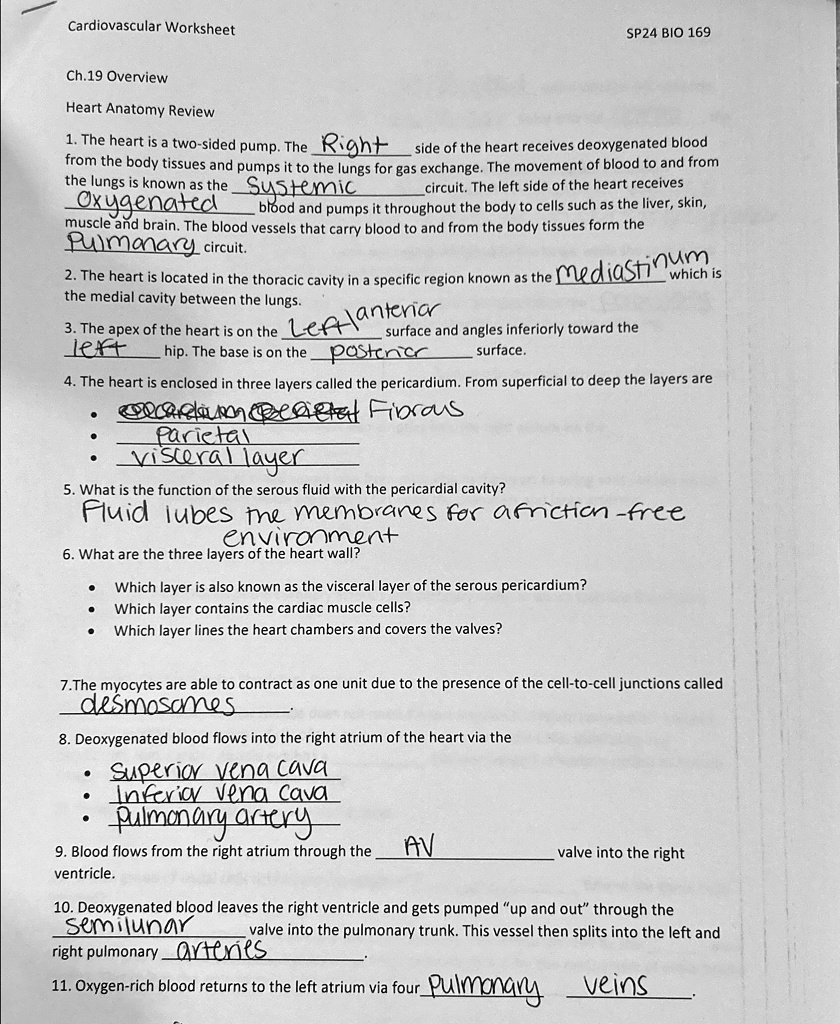 Cardiovascular Worksheet
SP24 BIO 169
Ch.19 Overview
Heart Anatomy Review
1. The heart is a two-sided pump. The Right side of the heart receives deoxygenated blood
from the body tissues and pumps it to the lungs for gas exchange. The movement of blood to and from
the lungs is known as the Systemic circuit. The left side of the heart receives
Oxygenated blood and pumps it throughout the body to cells such as the liver, skin,
muscle and brain. The blood vessels that carry blood to and from the body tissues form the
Pulmonary circuit.
2. The heart is located in the thoracic cavity in a specific region known as the mediastinum which is
the medial cavity between the lungs.
3. The apex of the heart is on the Left\anterior surface and angles inferiorly toward the
left hip. The base is on the posterior surface.
4. The heart is enclosed in three layers called the pericardium. From superficial to deep the layers are
• Fibrous
• Parietal
• visceral layer
5. What is the function of the serous fluid with the pericardial cavity?
Fluid lubes the membranes for a friction-free
environment
6. What are the three layers of the heart wall?
• Which layer is also known as the visceral layer of the serous pericardium?
• Which layer contains the cardiac muscle cells?
• Which layer lines the heart chambers and covers the valves?
7.The myocytes are able to contract as one unit due to the presence of the cell-to-cell junctions called
desmosomes.
8. Deoxygenated blood flows into the right atrium of the heart via the
• Superior vena cava
• Inferior vena cava
• pulmonary artery
9. Blood flows from the right atrium through the AV valve into the right
ventricle.
10. Deoxygenated blood leaves the right ventricle and gets pumped “up and out” through the
semilunar valve into the pulmonary trunk. This vessel then splits into the left and
right pulmonary arteries.
11. Oxygen-rich blood returns to the left atrium via four pulmonary veins.